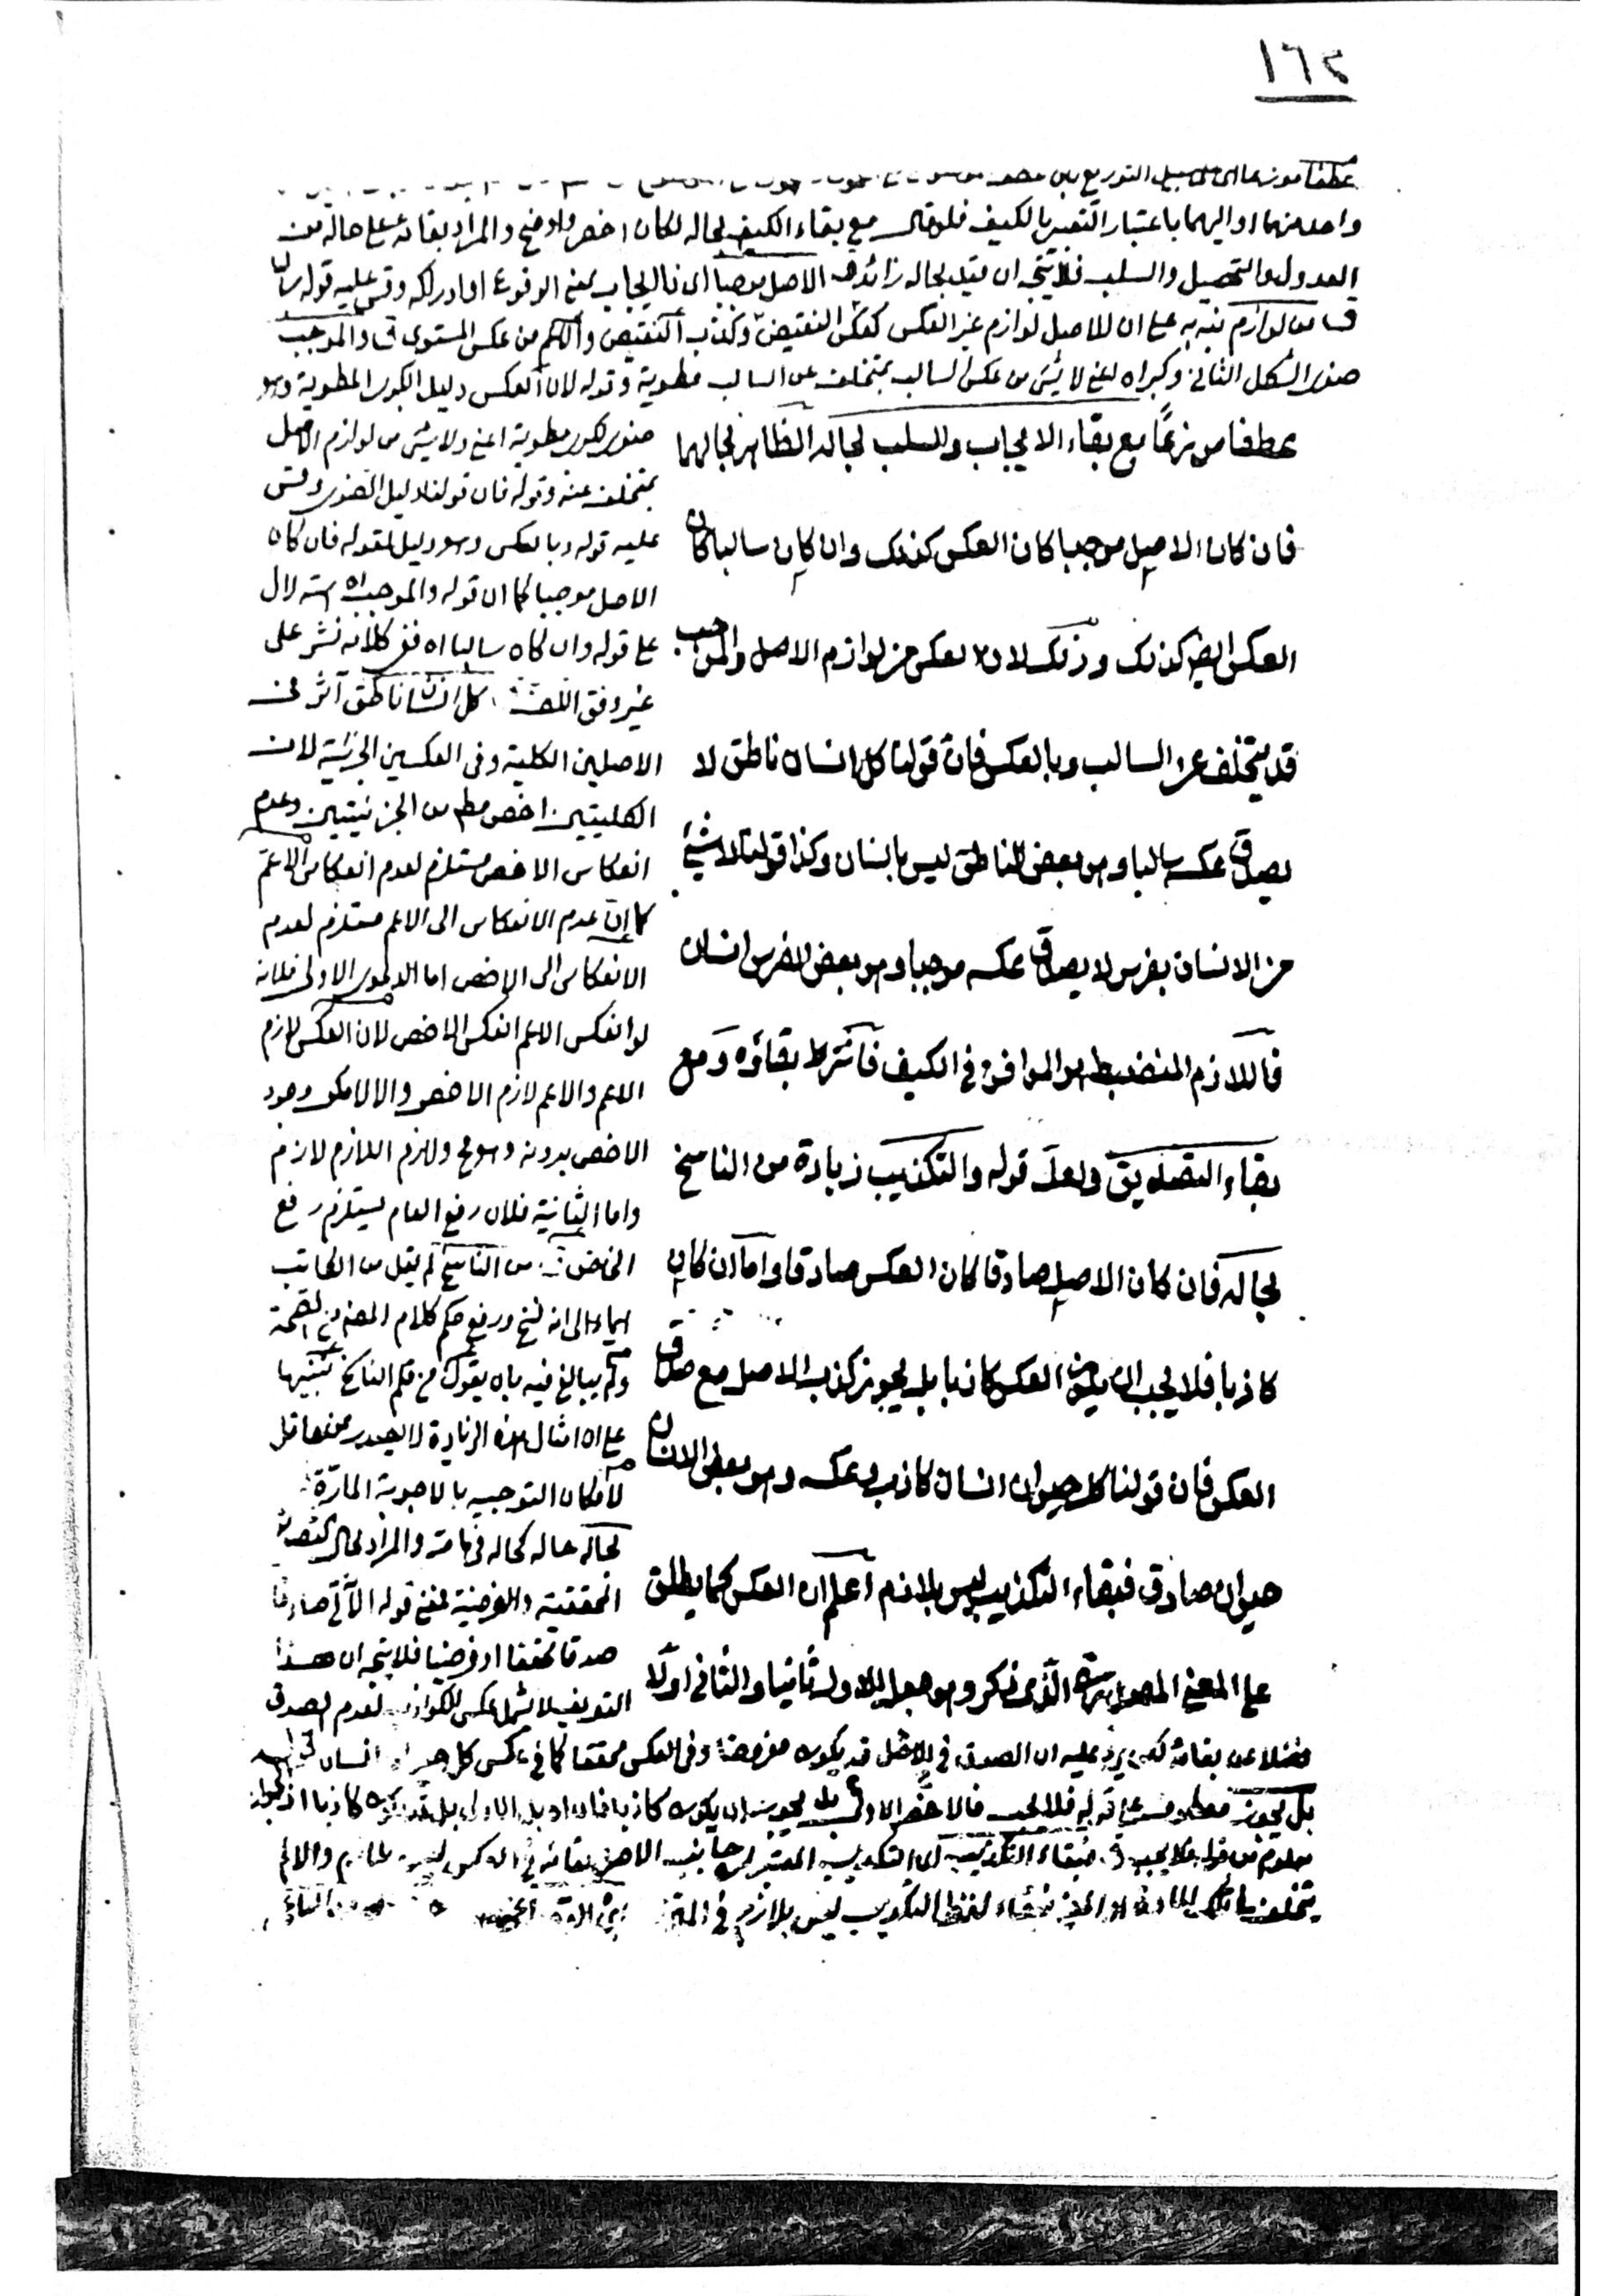 ١٦٢
عطفا موزعا اى على سبيل التوزيع بان
واحد منهما او اليهما باعتبار التعبير بالكيف فلو قال مع بقاء الكيف بحاله لكان اخصر واوضح والمراد بقائه على حاله من
العدول والتحصيل والسلب فلا يتجه ان قيد بحاله زائد الاصل موجبا اى فالايجاب بمعنى الوقوع او ادراكه وقس عليه قوله سالبا
من لوازم نبه به على ان للاصل لوازم غير العكس كعكس النقيض وكذب النقيض والكم من عكس المستوى والموجب
صغرى الشكل الثانى وكبراه اعنى لا شئ من عكس السالب بمتخلف عن السالب مطوية وقوله لان العكس دليل الكبرى المطوية وهو
عطفا من زعما مع بقاء الايجاب والسلب بحاله الظاهر بحالهما
فان كان الاصل موجبا كان العكس كذلك وان كان سالبا كان
العكس ايضا كذلك وذلك لان العكس من لوازم الاصل والموجب
قد يتخلف عن السالب وبالعكس فان قولنا كل انسان ناطق لا
يصدق عكسه سالبا وهو بعض الناطق ليس بانسان وكذا قولنا لا شئ
من الانسان بفرس لا يصدق عكسه موجبا وهو بعض الفرس انسان
فاللازم المنضبط هو الموافق فى الكيف فاشترط بقاؤه ومع
بقاء التصديق ولعل قوله والتكذيب زيادة من الناسخ
بحاله فان كان الاصل صادقا كان العكس صادقا واما ان كان
كاذبا فلا يجب ان يكون العكس كاذبا بل يجوز كذب الاصل مع صدق
العكس فان قولنا كل حيوان انسان كاذب وعكسه وهو بعض الانسان
حيوان صادق فبقاء التكذيب ليس بلازم اعلم ان العكس كما يطلق
على المعنى المصدرى الذى ذكر وهو جعل الاول ثانيا والثانى اولا
صغرى لكبرى مطوية اعنى ولا شئ من لوازم الاصل
بمتخلف عنه وقوله فان قولنا دليل الصغرى وقس
عليه قوله وبالعكس وهو دليل لقوله فان كان
الاصل موجبا كما ان قوله والموجب اه استدلال
على قوله وان كان سالبا اه ففى كلامه نشر على
غير وفق اللف كل انسان ناطق آثر فى
الاصلين الكلية وفى العكسين الجزئية لان
الكليتين اخص مط من الجزئيتين وعدم
انعكاس الاخص مستلزم لعدم انعكاس الاعم
كما ان عدم الانعكاس الى الاعم مستلزم لعدم
الانعكاس الى الاخص اما الدعوى الاولى فلانه
لو انعكس الاعم انعكس الاخص لان العكس لازم
الاعم والاعم لازم الاخص والا لامكن وجود
الاخص بدونه وهو مح ولازم اللازم لازم
واما الثانية فلان رفع العام يستلزم رفع
الخاص من الناسخ لم يقل من الكاتب
ايماء الى انه نسخ ورفع حكم كلام المصنف
ولم يبالغ فيه بان يقول من قلم الناسخ تنبيها
على ان امثال هذه الزيادة لا يصدر عن عاقل
لامكان التوجيه بالاجوبة المارة
بحاله حاله كحاله فى ما مر والمراد بحال التصديق
المحققية والفرضية فمعنى قوله الآتى صادقا
صدقا محققا او فرضيا فلا يتجه ان هذا
التعريف لا يشمل عكس الكواذب لعدم الصدق
فضلا عن بقائه لكن يرد عليه ان الصدق فى الاصل قد يكون مفروضا وفى العكس محققا كما فى عكس كل حيوان انسان
بل يجوز عطف على قوله فلا يجب فالاخصر الاولى بل يجوز ان يكون كاذبا
معلوم من قوله فلا يجب فبقاء التكذيب اى التكذيب المعتبر فى جانب الاصل بقائه فى العكس
يتخلف لفظ التكذيب ليس بلازم فى